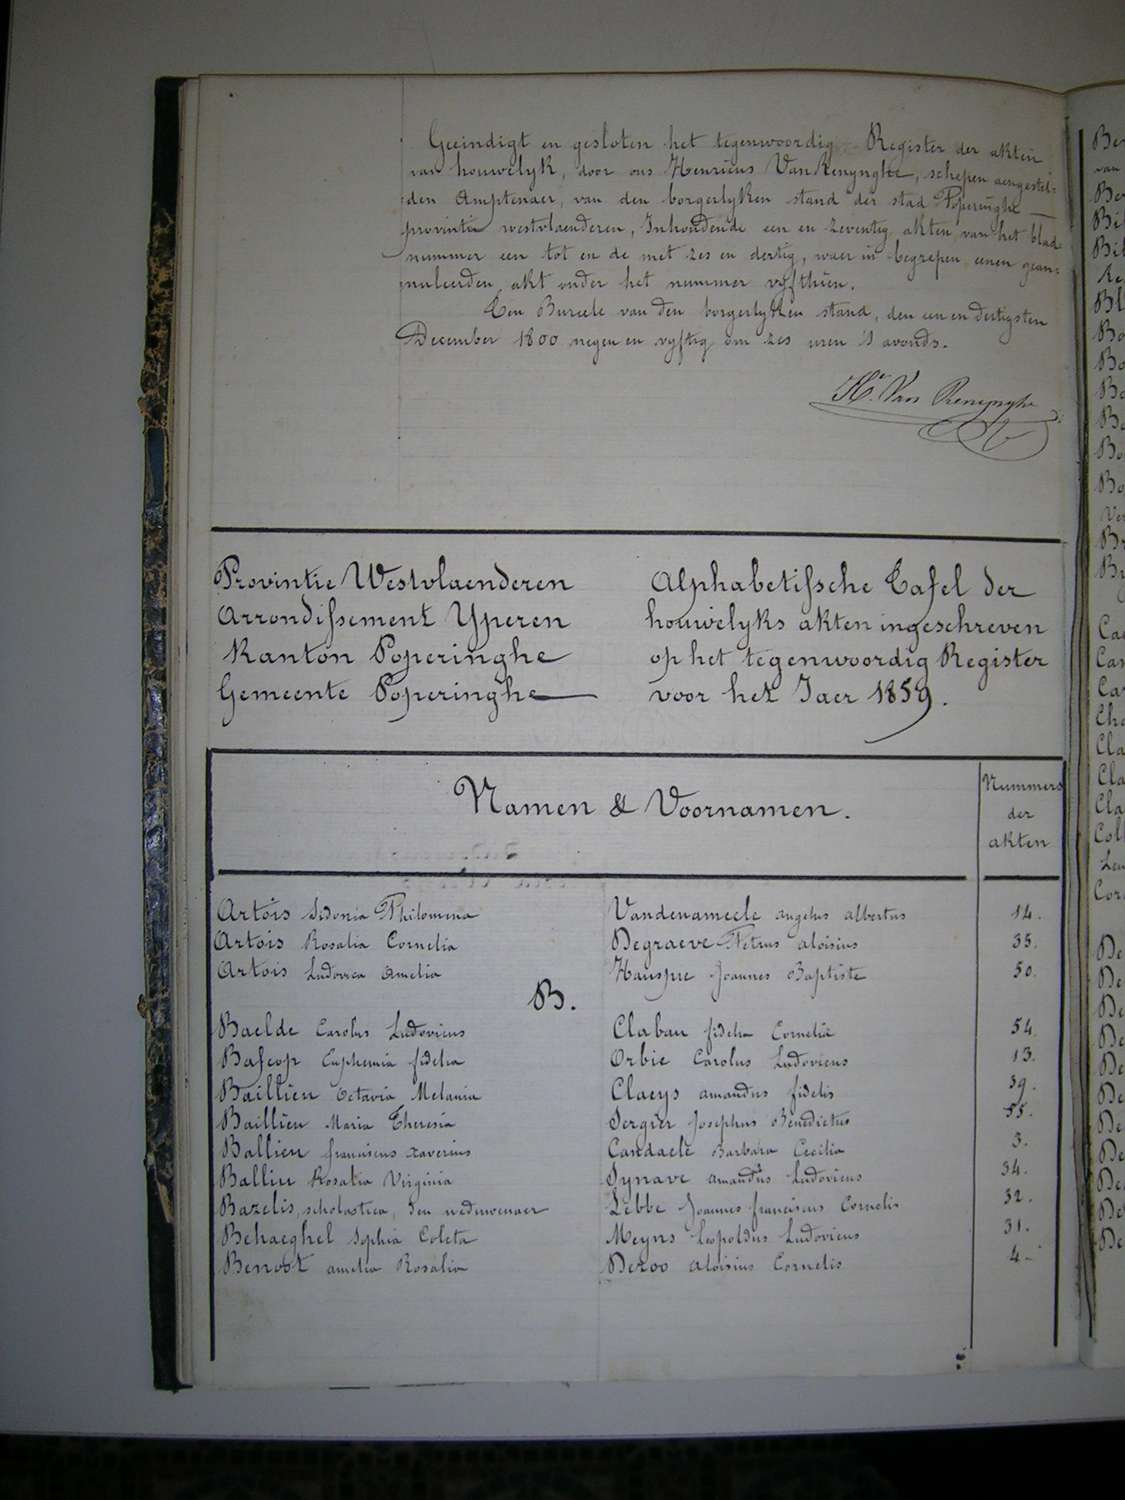 Geeindigt en gesloten het tegenwoordig Register der akten
van houwelyk, door ons Henricus Van Renynghe, schepen aengestel-
den Amptenaer, van den borgerlyken stand der stad Poperinghe
provintie westvlaenderen, Inhoudende een en zeventig akten, van het blad-
nummer een tot en de met zes en dertig, waer in begrepen eenen gean-
nuleerden akt onder het nummer vyfthien.
Ten Bureele van den borgerlyken stand, den een en dertigsten
December 1800 negen en vyftig om zes uren 's avonds.
He. Van Renynghe
Provintie Westvlaenderen
Arrondissement Yperen
Kanton Poperinghe
Gemeente Poperinghe
Alphabetissche Tafel der
houwelyks akten ingeschreven
op het tegenwoordig Register
voor het Jaer 1859.
Namen & Voornamen.
Nummers
der
akten
Artois Sidonia Philomena Vandenameele angelus albertus 14.
Artois Rosalia Cornelia Degraeve Petrus aloisius 35.
Artois Ludovica amelia Hauspie Joannes Baptiste 50.
B.
Baelde Carolus Ludovicus Clabau fidelia Cornelia 54.
Bascop Euphemia fidelia Orbie Carolus Ludovicus 13.
Baillieu Octavia Melania Claeys amandus fidelis 39.
Baillieu Maria Theresia Sergier Josephus Benedictus 55.
Ballieu franciscus xaverius Candaele Barbara Cecilia 3.
Balliu Rosalia Virginia Synave amandus Ludovicus 34.
Bazelis, scholastica, den weduwenaer Lebbe Joannes franciscus Cornelis 32.
Behaeghel Sophia Coleta Meyns Leopoldus Ludovicus 31.
Benoot amelia Rosalia Dezoo aloisius Cornelis 4.